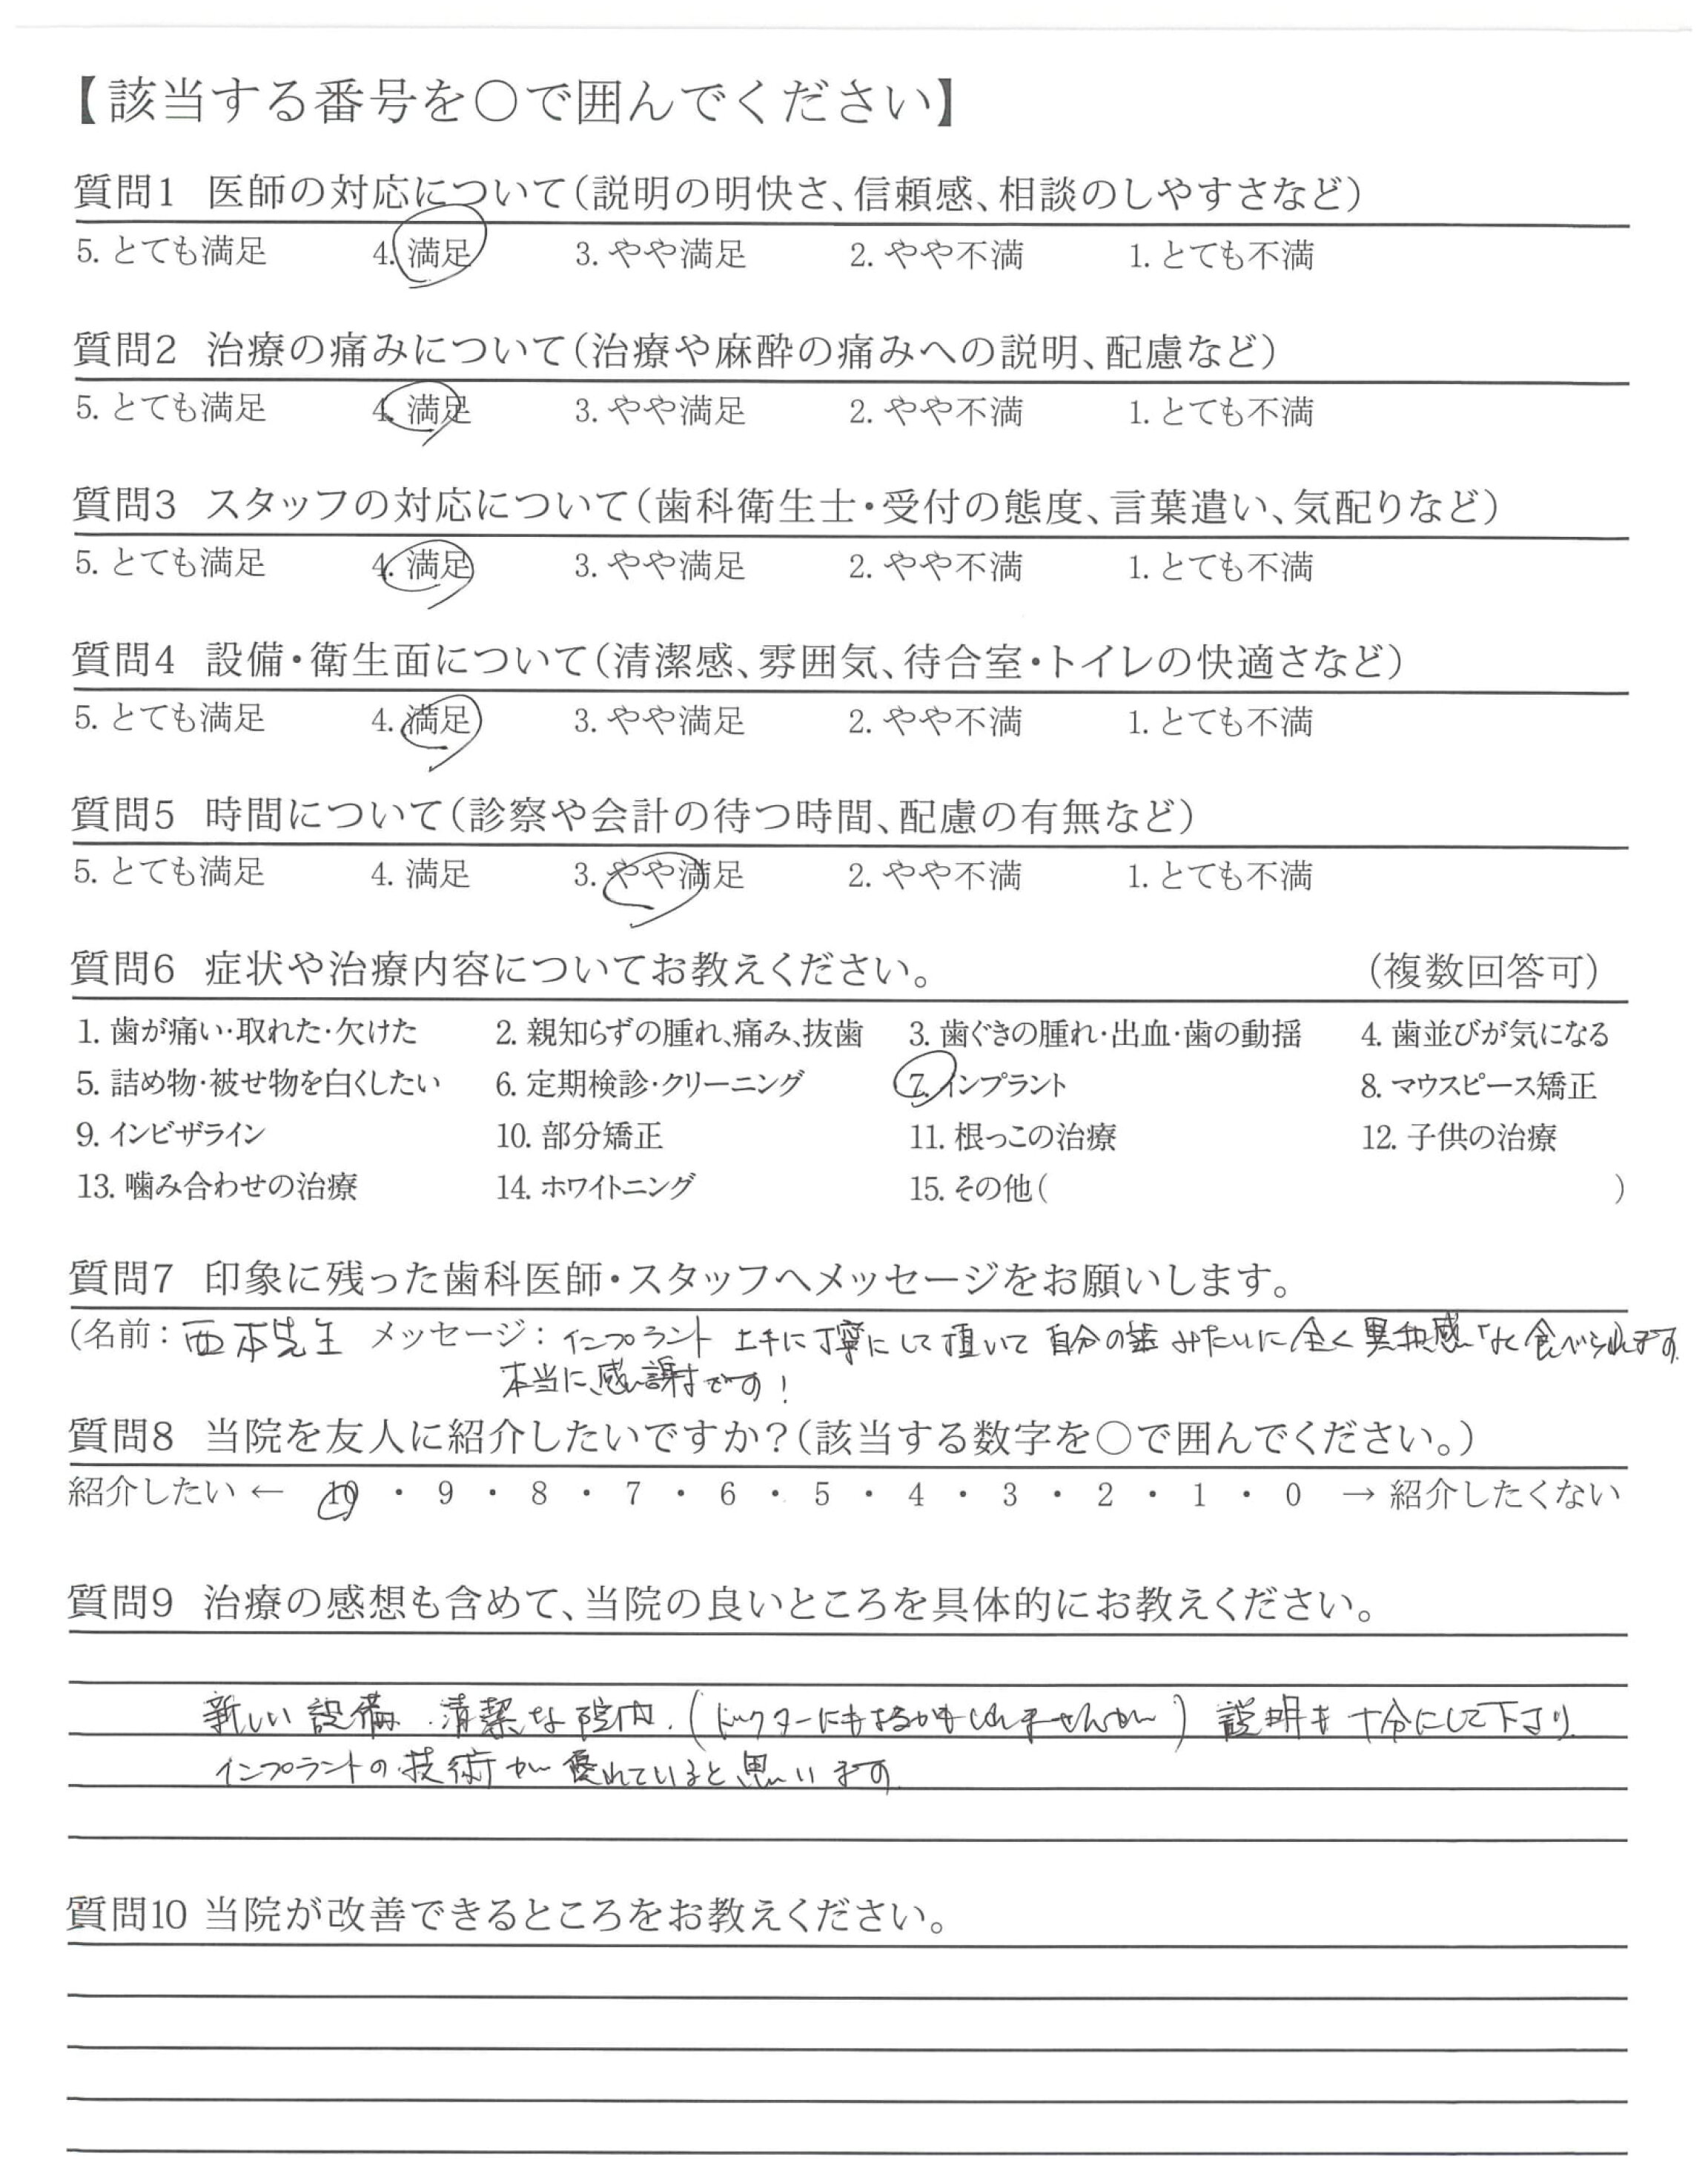 【該当する番号を〇で囲んでください】
質問1 医師の対応について(説明の明快さ、信頼感、相談のしやすさなど)
5. とても満足 4. 満足 3. やや満足 2. やや不満 1. とても不満
質問2 治療の痛みについて(治療や麻酔の痛みへの説明、配慮など)
5. とても満足 4. 満足 3. やや満足 2. やや不満 1. とても不満
質問3 スタッフの対応について(歯科衛生士・受付の態度、言葉遣い、気配りなど)
5. とても満足 4. 満足 3. やや満足 2. やや不満 1. とても不満
質問4 設備・衛生面について(清潔感、雰囲気、待合室・トイレの快適さなど)
5. とても満足 4. 満足 3. やや満足 2. やや不満 1. とても不満
質問5 時間について(診察や会計の待つ時間、配慮の有無など)
5. とても満足 4. 満足 3. やや満足 2. やや不満 1. とても不満
質問6 症状や治療内容についてお教えください。 (複数回答可)
1. 歯が痛い・取れた・欠けた 2. 親知らずの腫れ、痛み、抜歯 3. 歯ぐきの腫れ・出血・歯の動揺 4. 歯並びが気になる
5. 詰め物・被せ物を白くしたい 6. 定期検診・クリーニング 7. インプラント 8. マウスピース矯正
9. インビザライン 10. 部分矯正 11. 根っこの治療 12. 子供の治療
13. 噛み合わせの治療 14. ホワイトニング 15. その他( )
質問7 印象に残った歯科医師・スタッフへメッセージをお願いします。
(名前: 西本先生 メッセージ: インプラント 上手に丁寧にして頂いて 自分の歯みたいに全く異和感なく食べられます。
本当に感謝です!
質問8 当院を友人に紹介したいですか?(該当する数字を〇で囲んでください。)
紹介したい ← 10 ・ 9 ・ 8 ・ 7 ・ 6 ・ 5 ・ 4 ・ 3 ・ 2 ・ 1 ・ 0 → 紹介したくない
質問9 治療の感想も含めて、当院の良いところを具体的にお教えください。
新しい設備、清潔な院内、(ドクターにもよるかもしれませんが) 説明も十分にして下さり、
インプラントの技術が優れていると思います。
質問10 当院が改善できるところをお教えください。